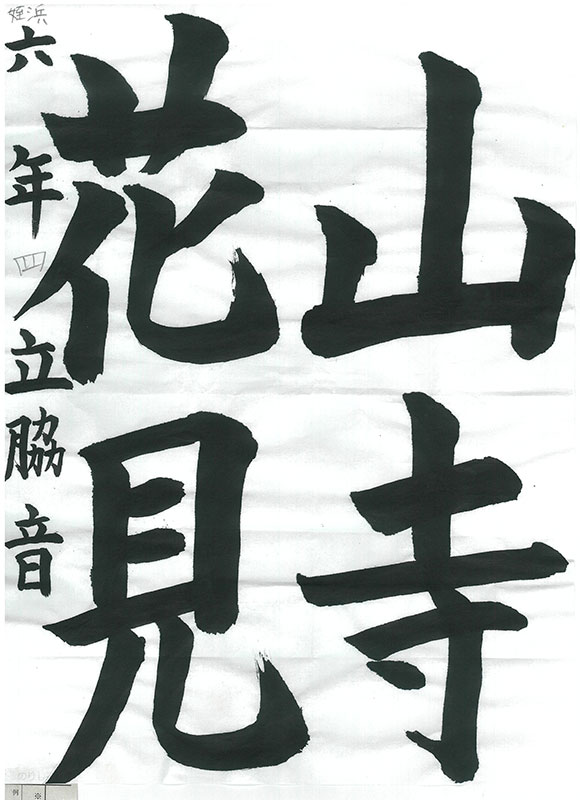 山寺
花見
姪浜
六年四立脇音
例 ※